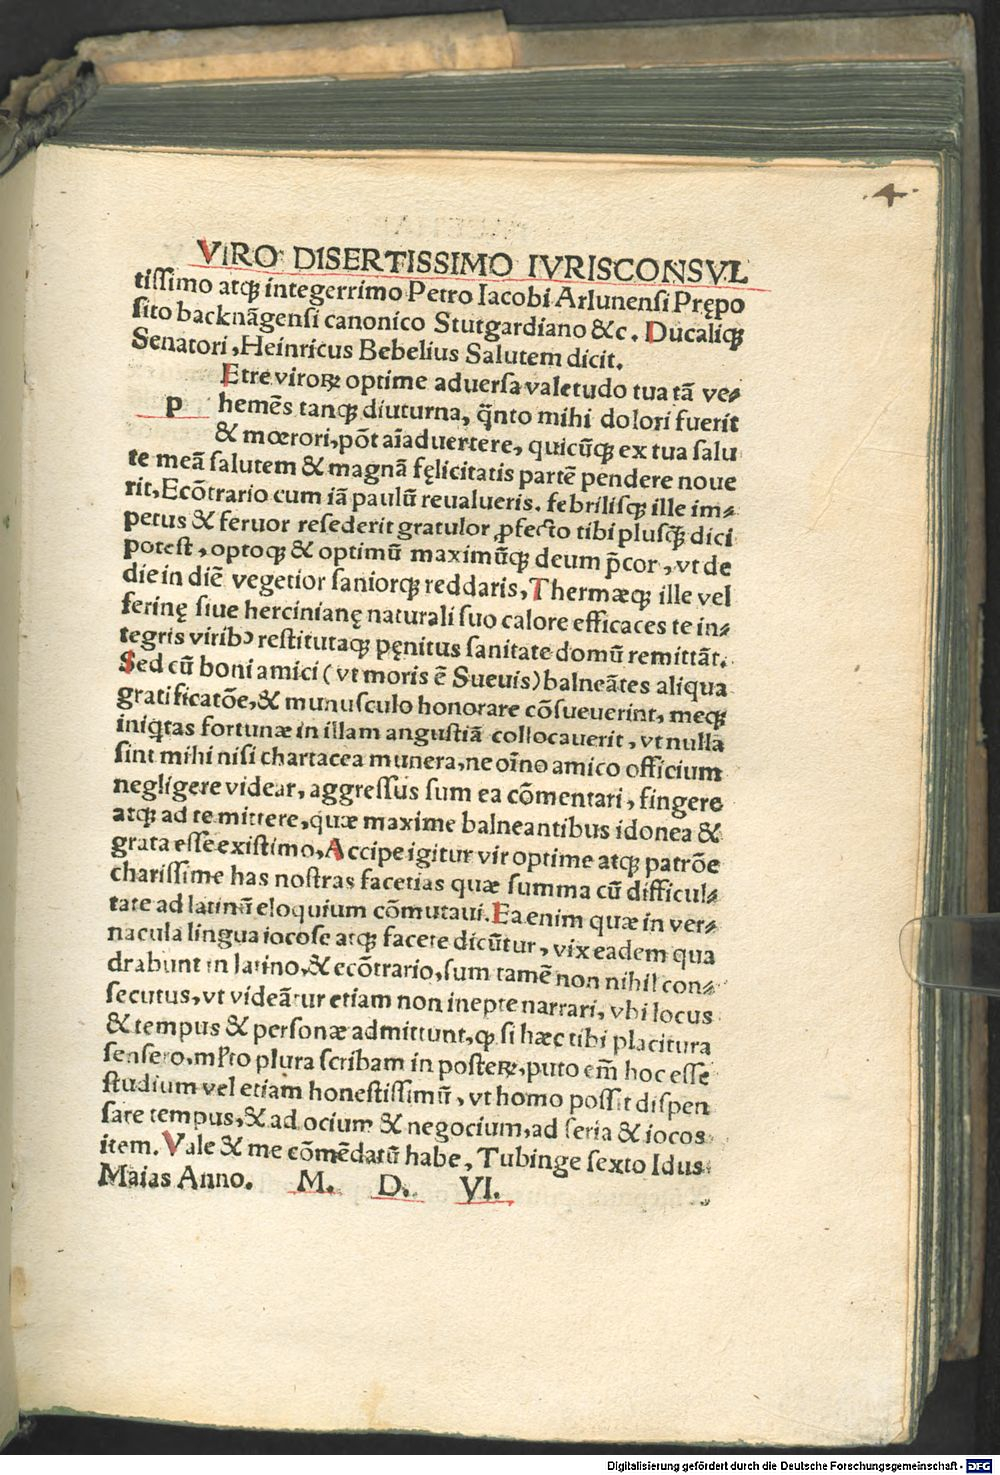 .4.
VIRO DISERTISSIMO IVRISCONSVL
tissimo atqꝫ integerrimo Petro Iacobi Arlunensi Prępo
sito backnãgensi canonico Stutgardiano &c. Ducaliqꝫ
Senatori, Heinricus Bebelius Salutem dicit.
Etre viroꝝ optime aduersa valetudo tua tã ve⸗
p hemẽs tanqꝫ diuturna, q̃nto mihi dolori fuerit
& mœrori, põt aĩaduertere, quicũqꝫ ex tua salu
te meã salutem & magnã fęlicitatis partẽ pendere noue
rit, Ecõtrario cum iã paulũ reualueris. febrilisqꝫ ille im⸗
petus & feruor resederit gratulor ꝓfecto tibi plusqꝫ̃ dici
potest, optoqꝫ & optimũ maximũqꝫ deum p̃cor, vt de
die in diẽ vegetior saniorqꝫ reddaris, Thermæqꝫ ille vel
ferinę siue hercinianę naturali suo calore efficaces te in⸗
tegris viribꝰ restitutaqꝫ pęnitus sanitate domũ remittãt.
Sed cũ boni amici (vt moris ẽ Sueuis) balneãtes aliqua
gratificatõe, & munusculo honorare cõsueuerint, meqꝫ
iniq̃tas fortunæ in illam angustiã collocauerit, vt nulla
sint mihi nisi chartacea munera, ne oĩno amico officium
negligere videar, aggressus sum ea cõmentari, fingere
atqꝫ ad te mittere, quæ maxime balneantibus idonea &
grata esse existimo, Accipe igitur vir optime atqꝫ patrõe
charissime has nostras facetias quæ summa cũ difficul⸗
tate ad latinũ eloquium cõmutaui. Ea enim quæ in ver⸗
nacula lingua iocose atqꝫ facete dicũtur, vix eadem qua
drabunt in latino, & ecõtrario, sum tamẽ non nihil con⸗
secutus, vt videãtur etiam non inepte narrari, vbi locus
& tempus & personæ admittunt, ꝙ si hæc tibi placitura
sensero, ml̃to plura scribam in posteꝝ, puto em̃ hoc esse
studium vel etiam honestissimũ, vt homo possit dispen
sare tempus, & ad ocium & negocium, ad seria & iocos
item. Vale & me cõmẽdatũ habe, Tubinge sexto Idus
Maias Anno. M. D. VI.
Digitalisierung gefördert durch die Deutsche Forschungsgemeinschaft - DFG